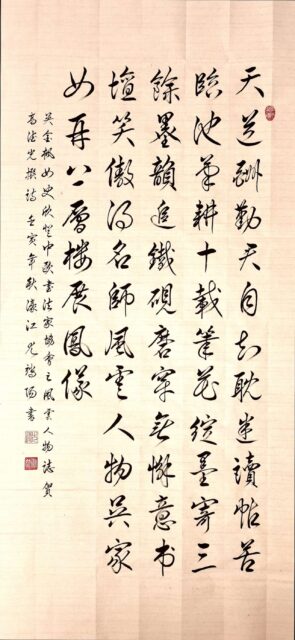 天道酬勤天自知耽迷讀帖苦
臨池筆耕十載筆花綻墨寄三
餘墨韻追鐵硯磨穿無懈意书
壇笑傲得名師風雲人物吳家
女再上層樓展鳳儀
吳金女史欣登中書法家協會之風雲人物誌贺
德光撰詩壬寅年秋濠江書